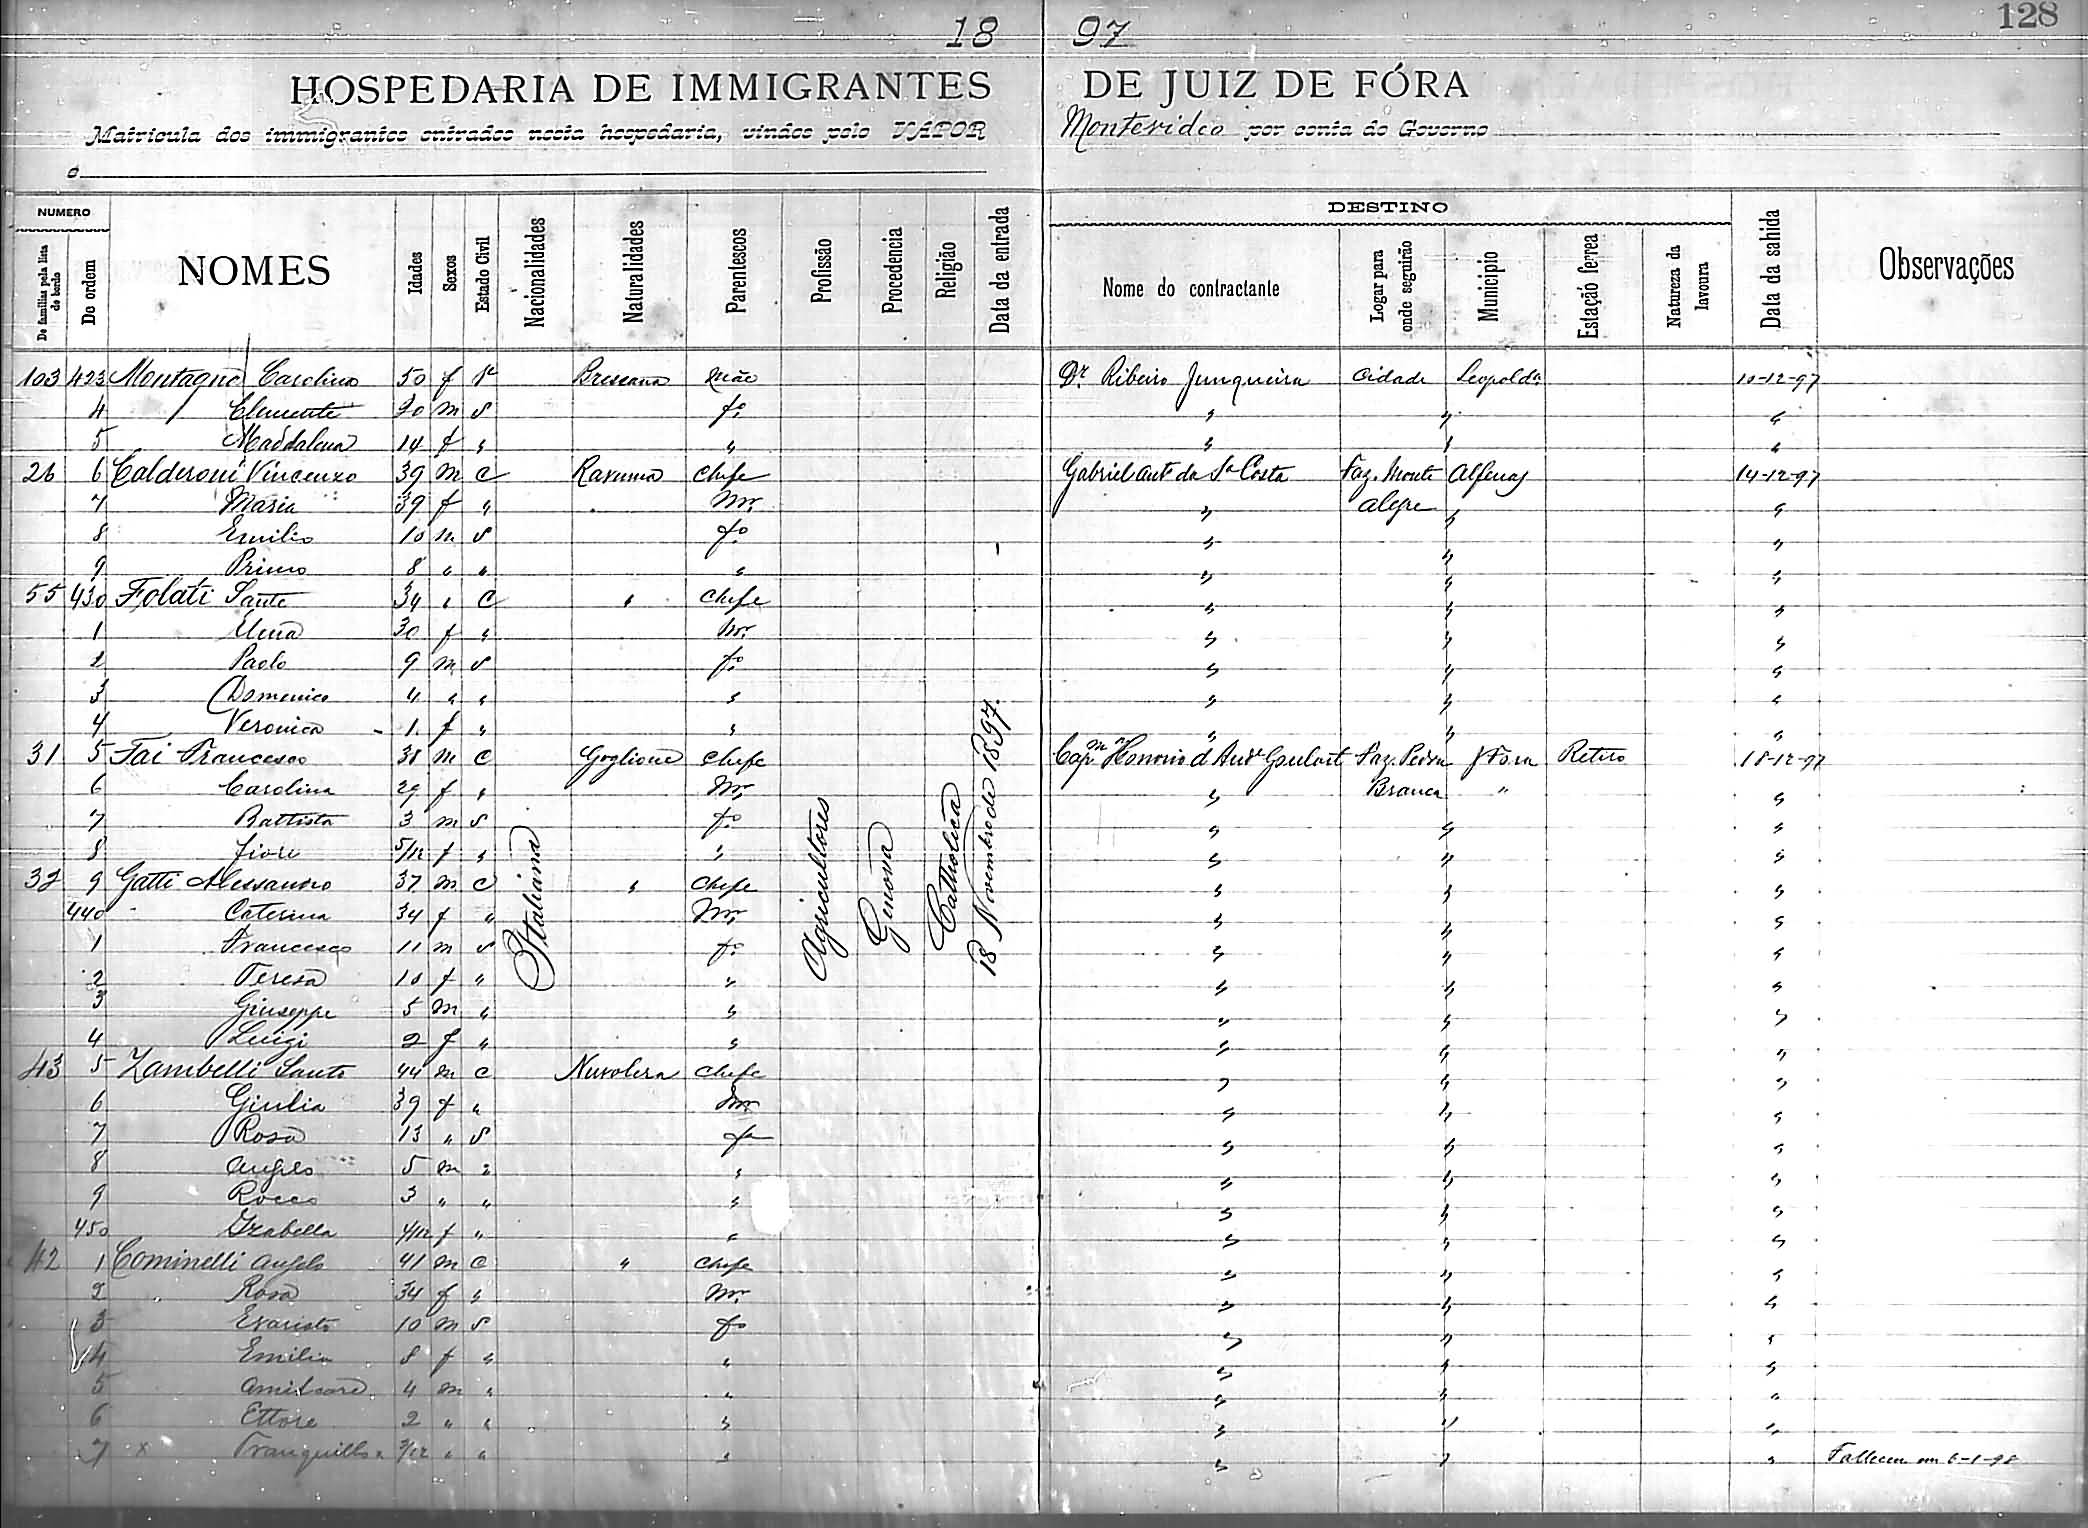 128
18 97
HOSPEDARIA DE IMMIGRANTES DE JUIZ DE FÓRA
Matricula dos immigrantes entrados nesta hospedaria, vindos pelo VAPOR Montevideo por conta do Governo
NUMERO DESTINO
De familias pela lista de bordo De ordem NOMES Idades Sexos Estado Civil Nacionalidades Naturalidades Parentescos Profissão Procedencia Religião Data da entrada Nome do contractante Logar para onde seguirão Municipio Estação ferrea Natureza da lavoura Data da sahida Observações
103 423 Carolina 50 f Bresciana Mãe Dr. Ribeiro Junqueira Cidade Leopolda 10-12-97
4 Clemente 20 m S fo " " "
5 Maddalena 14 f " " " " "
26 6 Calderoni Vincenzo 39 m C Ravenna Chefe Gabriel Anto da Sa Costa Faz. Monte Alfenas 14-12-97
7 Maria 39 f " Mr. " Alegre " "
8 Emilio 10 m S fo " " "
9 Primo 8 " " " " " "
55 430 Folati Sante 34 " C " Chefe " " "
1 Elena 30 f " Mr. " " "
2 Paolo 9 m S fo " " "
3 Domenico 4 " " " " " "
4 Veronica 1 f " " " " "
31 5 Fai Francesco 38 m C Goglione Chefe Capm Honorio d Goulart Faz. Pedra J Fora Retiro 18-12-97
6 Carolina 29 f " Mr. " Branca " "
7 Battista 3 m S fo " " "
8 Fiore 5/12 f " " " " "
32 9 Gatti Alessandro 37 m C " Chefe " " "
440 Caterina 34 f " Mr. " " "
1 Francesco 11 m S fo " " "
2 Teresa 10 f " " " " "
3 Giuseppe 5 m " " " " "
4 Luigi 2 f " " " " "
43 5 Zambelli Santo 44 m C Nuvolera Chefe " " "
6 Giulia 39 f " Mr. " " "
7 Rosa 13 " S fa " " "
8 Angelo 5 m " " " " "
9 Rocco 3 " " " " " "
450 Izabella 4/12 f " " " " "
42 1 Cominelli Angelo 41 m C " Chefe " " "
2 Rosa 34 f " Mr. " " "
3 Evaristo 10 m S fo " " "
4 Emilia 8 f " " " " "
5 Amilcare 4 m " " " " "
6 Ettore 2 " " " " " "
7 x Tranquillo " " " " " " Falleceu em 6-1-98
Italiana
Agricultores
Genova
Catholica
18 Novembro de 1897.